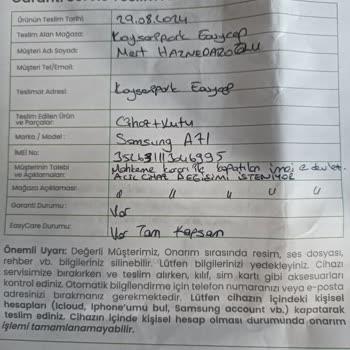 Ürünün Teslim Tarihi: 29.08.2024
Teslim Alan Mağaza: Kayseripark Easycep
Müşteri Adı Soyadı: Mert HAZNEDAROĞLU
Müşteri Tel/Email:
Teslimat Adresi: Kayseripark Easycep
Teslim Edilen Ürün
ve Parçalar: Cihaz+Kutu
Marka / Model : Samsung A71
IMEI No:
Müşterinin Talebi Mahkeme kararı ile kapatılan imei
ve Açıklamaları: ACİL CİHAZ DEĞİŞİMİ İSTENİYOR
Mağaza Açıklaması: " " " " "
Garanti Durumu : Var
EasyCare Durumu: Var Tam Kapsam
Önemli Uyarı: Değerli Müşterimiz, Onarım sırasında resim, ses dosyası,
rehber vb. bilgileriniz silinebilir. Lütfen bilgilerinizi yedekleyiniz. Cihazı
servisimize bırakırken ve teslim alırken, kılıf, sim kartı gibi aksesuarları
kontrol ediniz. Otomatik bilgilendirme için telefon numaranızı veya e-posta
adresinizi bırakmanız gerekmektedir. Lütfen cihazın içindeki kişisel
hesapları (Icloud, Iphone'umu bul, Samsung account vb.) kapatarak
teslim ediniz. Cihazın içinde kişisel hesap olması durumunda onarım
işlemi tamamlanamayabilir.